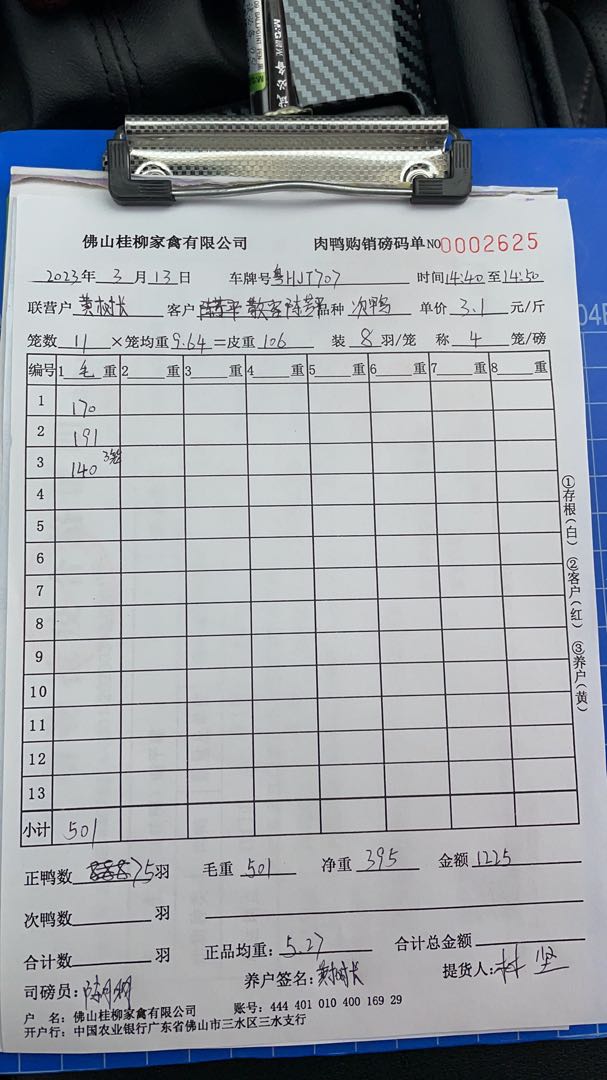 佛山桂柳家禽有限公司 肉鸭购销磅码单 NO 0002625
2023年 3月13日 车牌号 粤HJT707 时间14:40至14:50
联营户 黄树长 客户 散客 品种 次鸭 单价 3.1 元/斤
笼数 11 ×笼均重 9.64 =皮重 106 装 8 羽/笼 称 4 笼/磅
编号 1 毛 重 2 重 3 重 4 重 5 重 6 重 7 重 8 重
1 170
2 191
3 140 3笼
4
5
6
7
8
9
10
11
12
13
小计 501
①存根(白) ②客户(红) ③养户(黄)
正鸭数 75羽 毛重 501 净重 395 金额 1225
次鸭数 羽
合计数 羽 正品均重: 5.27 合计总金额
司磅员: 养户签名: 黄树长 提货人: 林坚
户 名: 佛山桂柳家禽有限公司 账号: 444 401 010 400 169 29
开户行: 中国农业银行广东省佛山市三水区三水支行
M&G